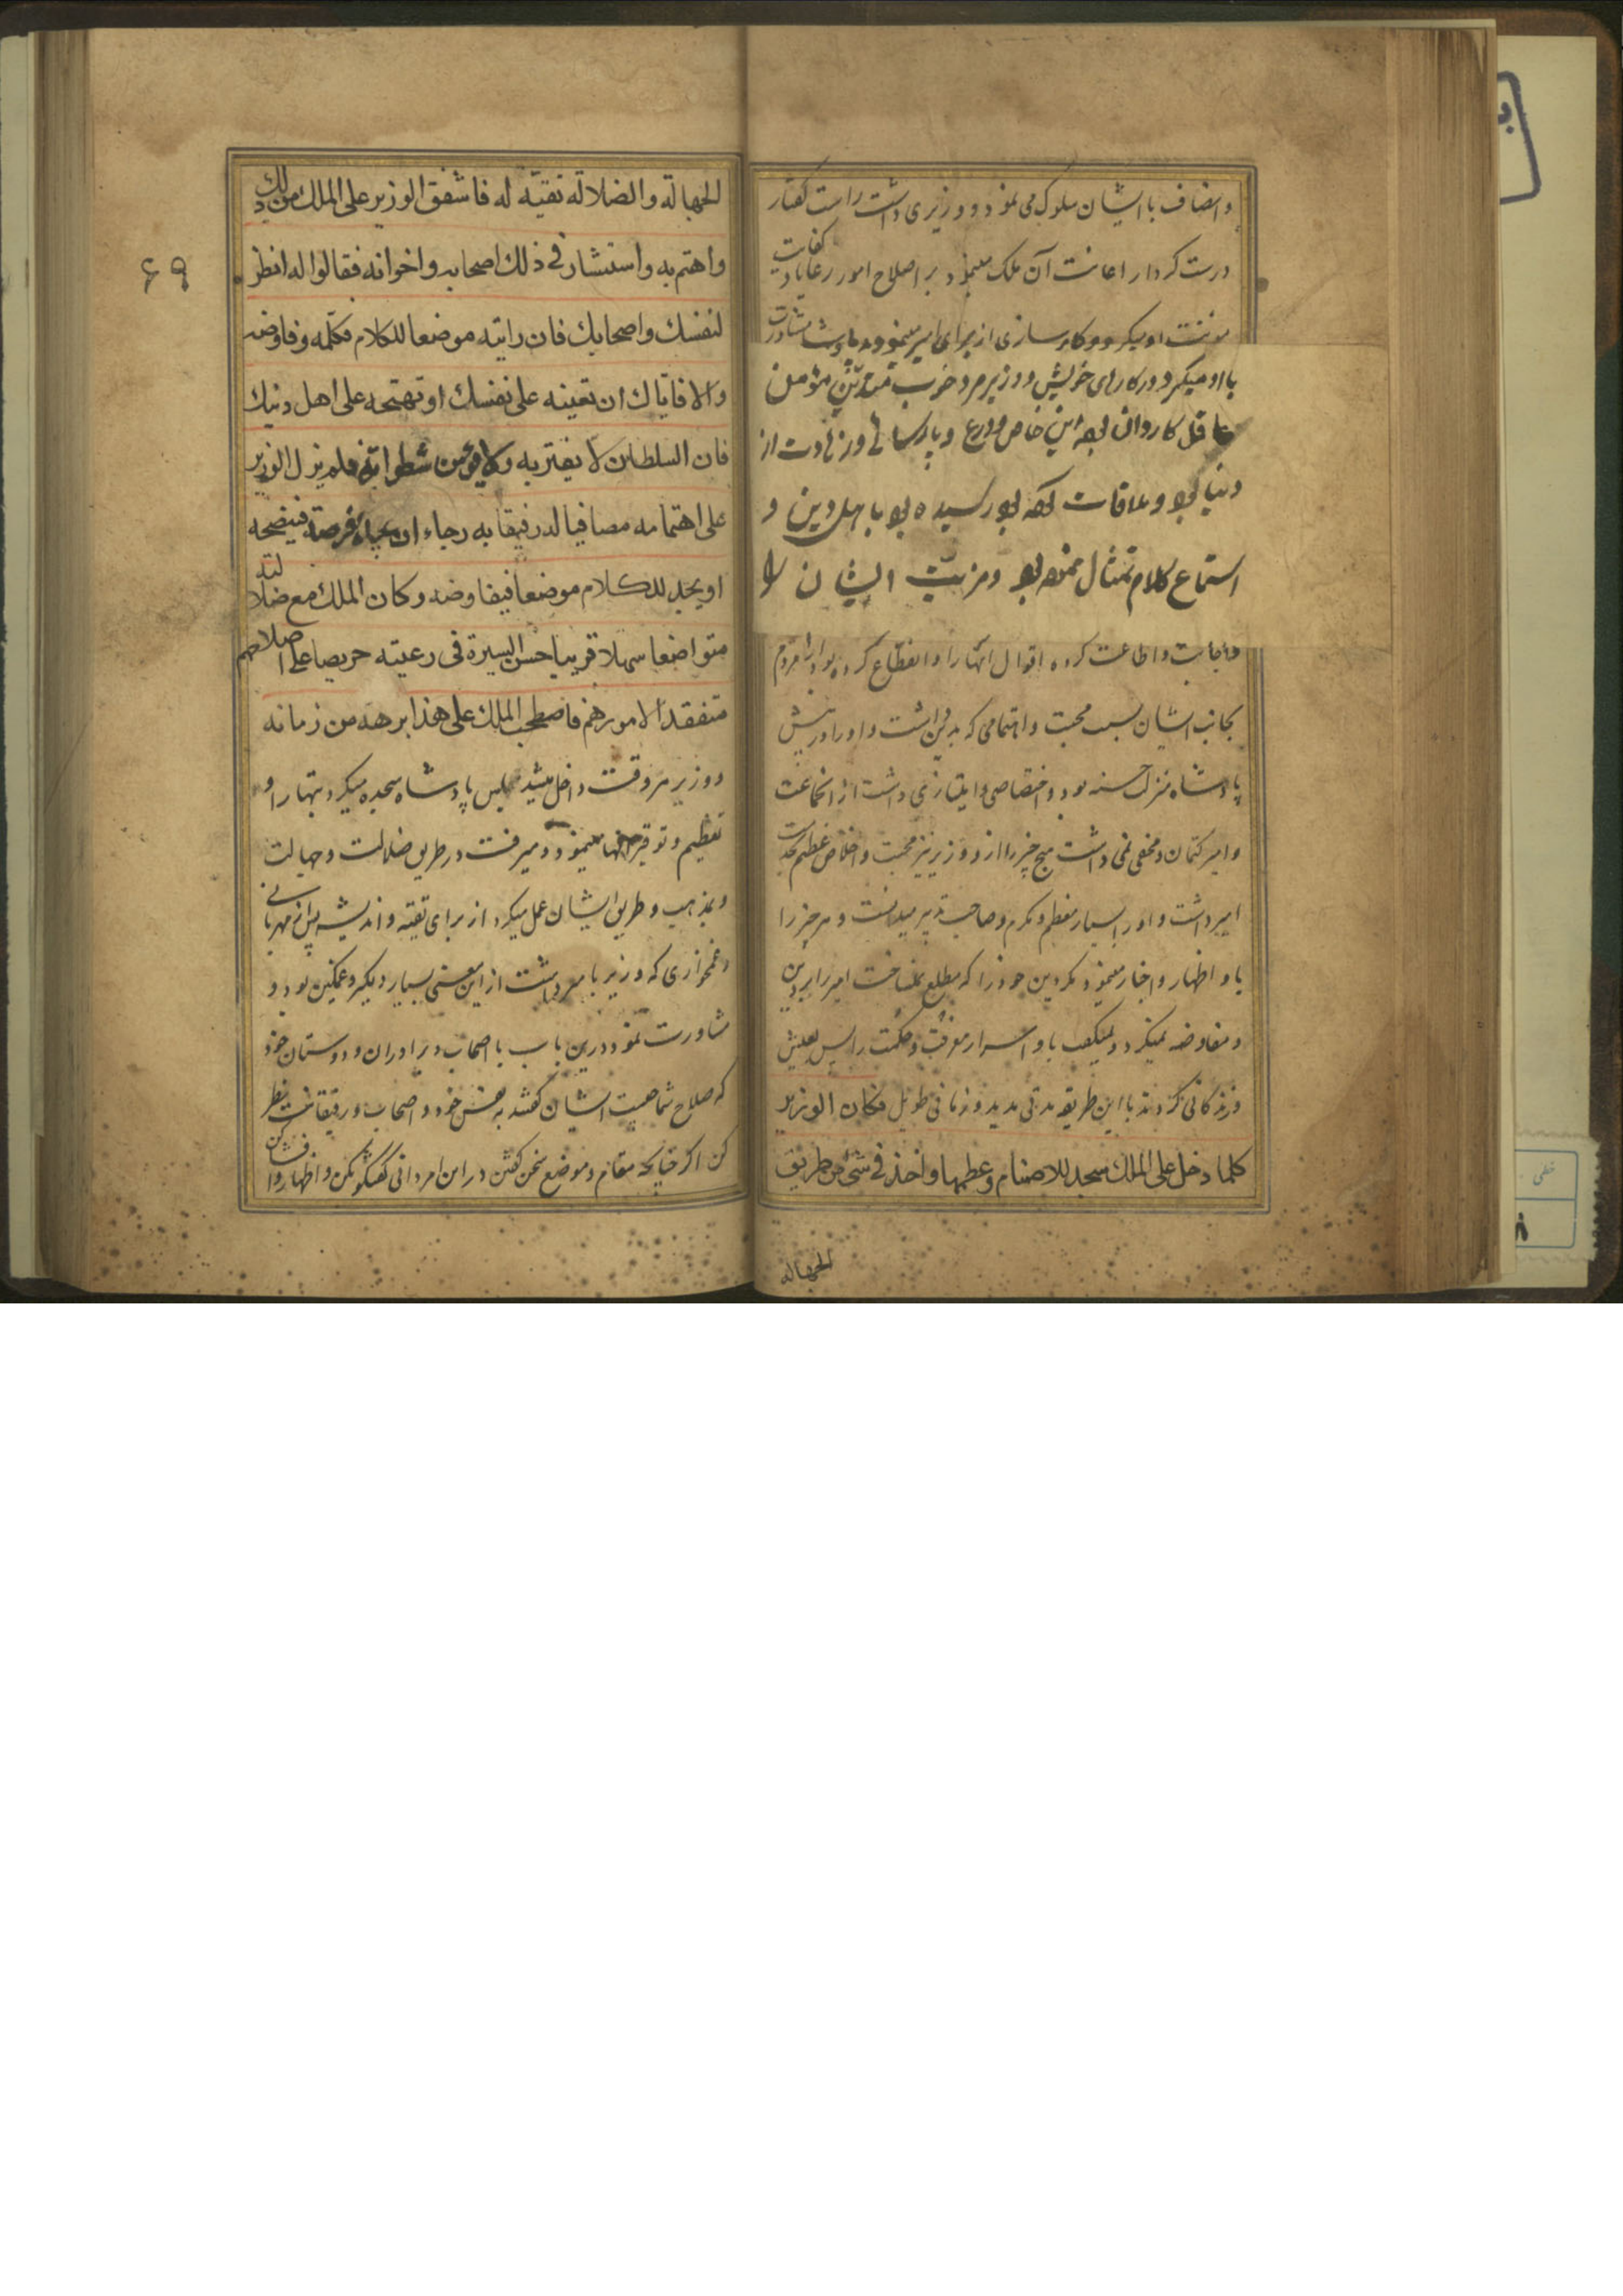 و انصاف با ایشان سلوک می نمود و وزیری داشت راست کفتار
درست کردار اعانت آن ملک مینمود بر اصلاح امور رعایا و کفایت
مونت او میکرد و کارسازی از برای امیر مینمود و پادشاه مشاورت
با او میکرد در کارهای خویش و وزیر مرد خوب متدین مؤمن
عاقل کاردان بود این خاص و ورع و پارسائی و زهادت از
دنیا بود و ملاقات کرده بود رسیده بود باهل دین و
استماع کلام نموده بود و مزیت ایشان را
و اجابت و اطاعت کرده اقوال آنها را و انقطاع کرده بود
بجانب ایشان بسبب محبت و اهتمامی که بدین داشت و او را در پیش
پادشاه منزلت حسنه بود و اختصاصی و امتیازی داشت از انجماعت
و امیر کتمان و مخفی نمی داشت هیچ چیز را از و وزیر نیز محبت و اخلاص عظیم بخدمت
امیر داشت و او را بسیار معظم و مکرم و صاحب تدبیر میدانست و هر چیز را
باو اظهار و اخبار مینمود مکر دین خود را که مطلع نمیساخت امیر را برین
و مفاوضه نمیکرد و نمیکفت باو اسرار معرفت و حکمت را پس تعیش
و زندکانی کردند با این طریقه مدتی مدید و زمانی طویل فکان الوزیر
کلما دخل علی الملك سجد للاصنام و عظمها واخذ فی شئ من طریق
الجهالة
۶۹
الجهالة والضلالة تقیّة له فاشفق الوزیر علی الملك من ذلك
واهتم به واستشار فی ذلك اصحابه واخوانه فقالوا له انظر
لنفسك واصحابك فان رایته موضعا للکلام فکلّمه وفاوضه
والا فایاك ان تعینه علی نفسك او تهیّجه علی اهل دینك
فان السلطان لا یغتر به ولا یؤمن سطواته فلم یزل الوزیر
علی اهتمامه مصافیا له رفیقا به رجاء ان یجد فرصة فینصحه
او یجد للکلام موضعا فیفاوضه وکان الملك مع ضلالته
متواضعا سهلا قریبا حسن السیرة فی رعیته حریصا علی اصلاحهم
متفقدا لامورهم فاصطحب الملك علی هذا برهة من زمانه
و وزیر هر وقت داخل میشد مجلس پادشاه سجده میکرد بتها را و
تعظیم و توقیر انها مینمود و میرفت در طریق ضلالت و جهالت
و بمذهب و طریق ایشان عمل میکرد از برای تقیه و اندیشه پس از مهربانی
و غمخواری که وزیر با داشت از این معنی بسیار دلکیر و غمکین بود و
مشاورت نمود درین باب با اصحاب و برادران و دوستان خود
که صلاح شما چیست ایشان کفتند به نفس خود و اصحاب و رفیقانت نظر
کن اکر چنانچه مقام و موضع سخن کفتن در این امر دانی کفتکو بکن و اظهار و افشا کن